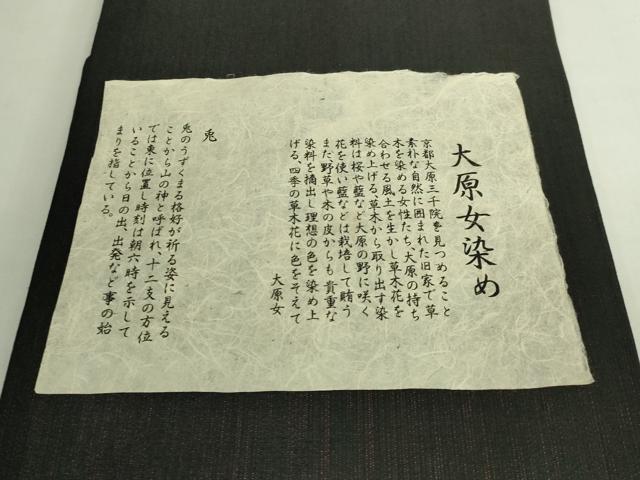 大原女染め
京都大原三千院を見つめること
素朴な自然に囲まれた旧家で草
木を染める女性たち、大原の持ち
合わせる風土を生かし草木花を
染め上げる。草木から取り出す染
料は桜や藍など大原の野に咲く
花を使い藍などは栽培して賄う
また野草や木の皮からも貴重な
染料を摘出し理想の色を染め上
げる、四季の草木花に色をそえて
大原女
兎
兎のうずくまる格好が祈る姿に見える
ことから山の神と呼ばれ、十二支の方位
では東に位置し時刻は朝六時を示して
いることから日の出、出発など事の始
まりを指している。